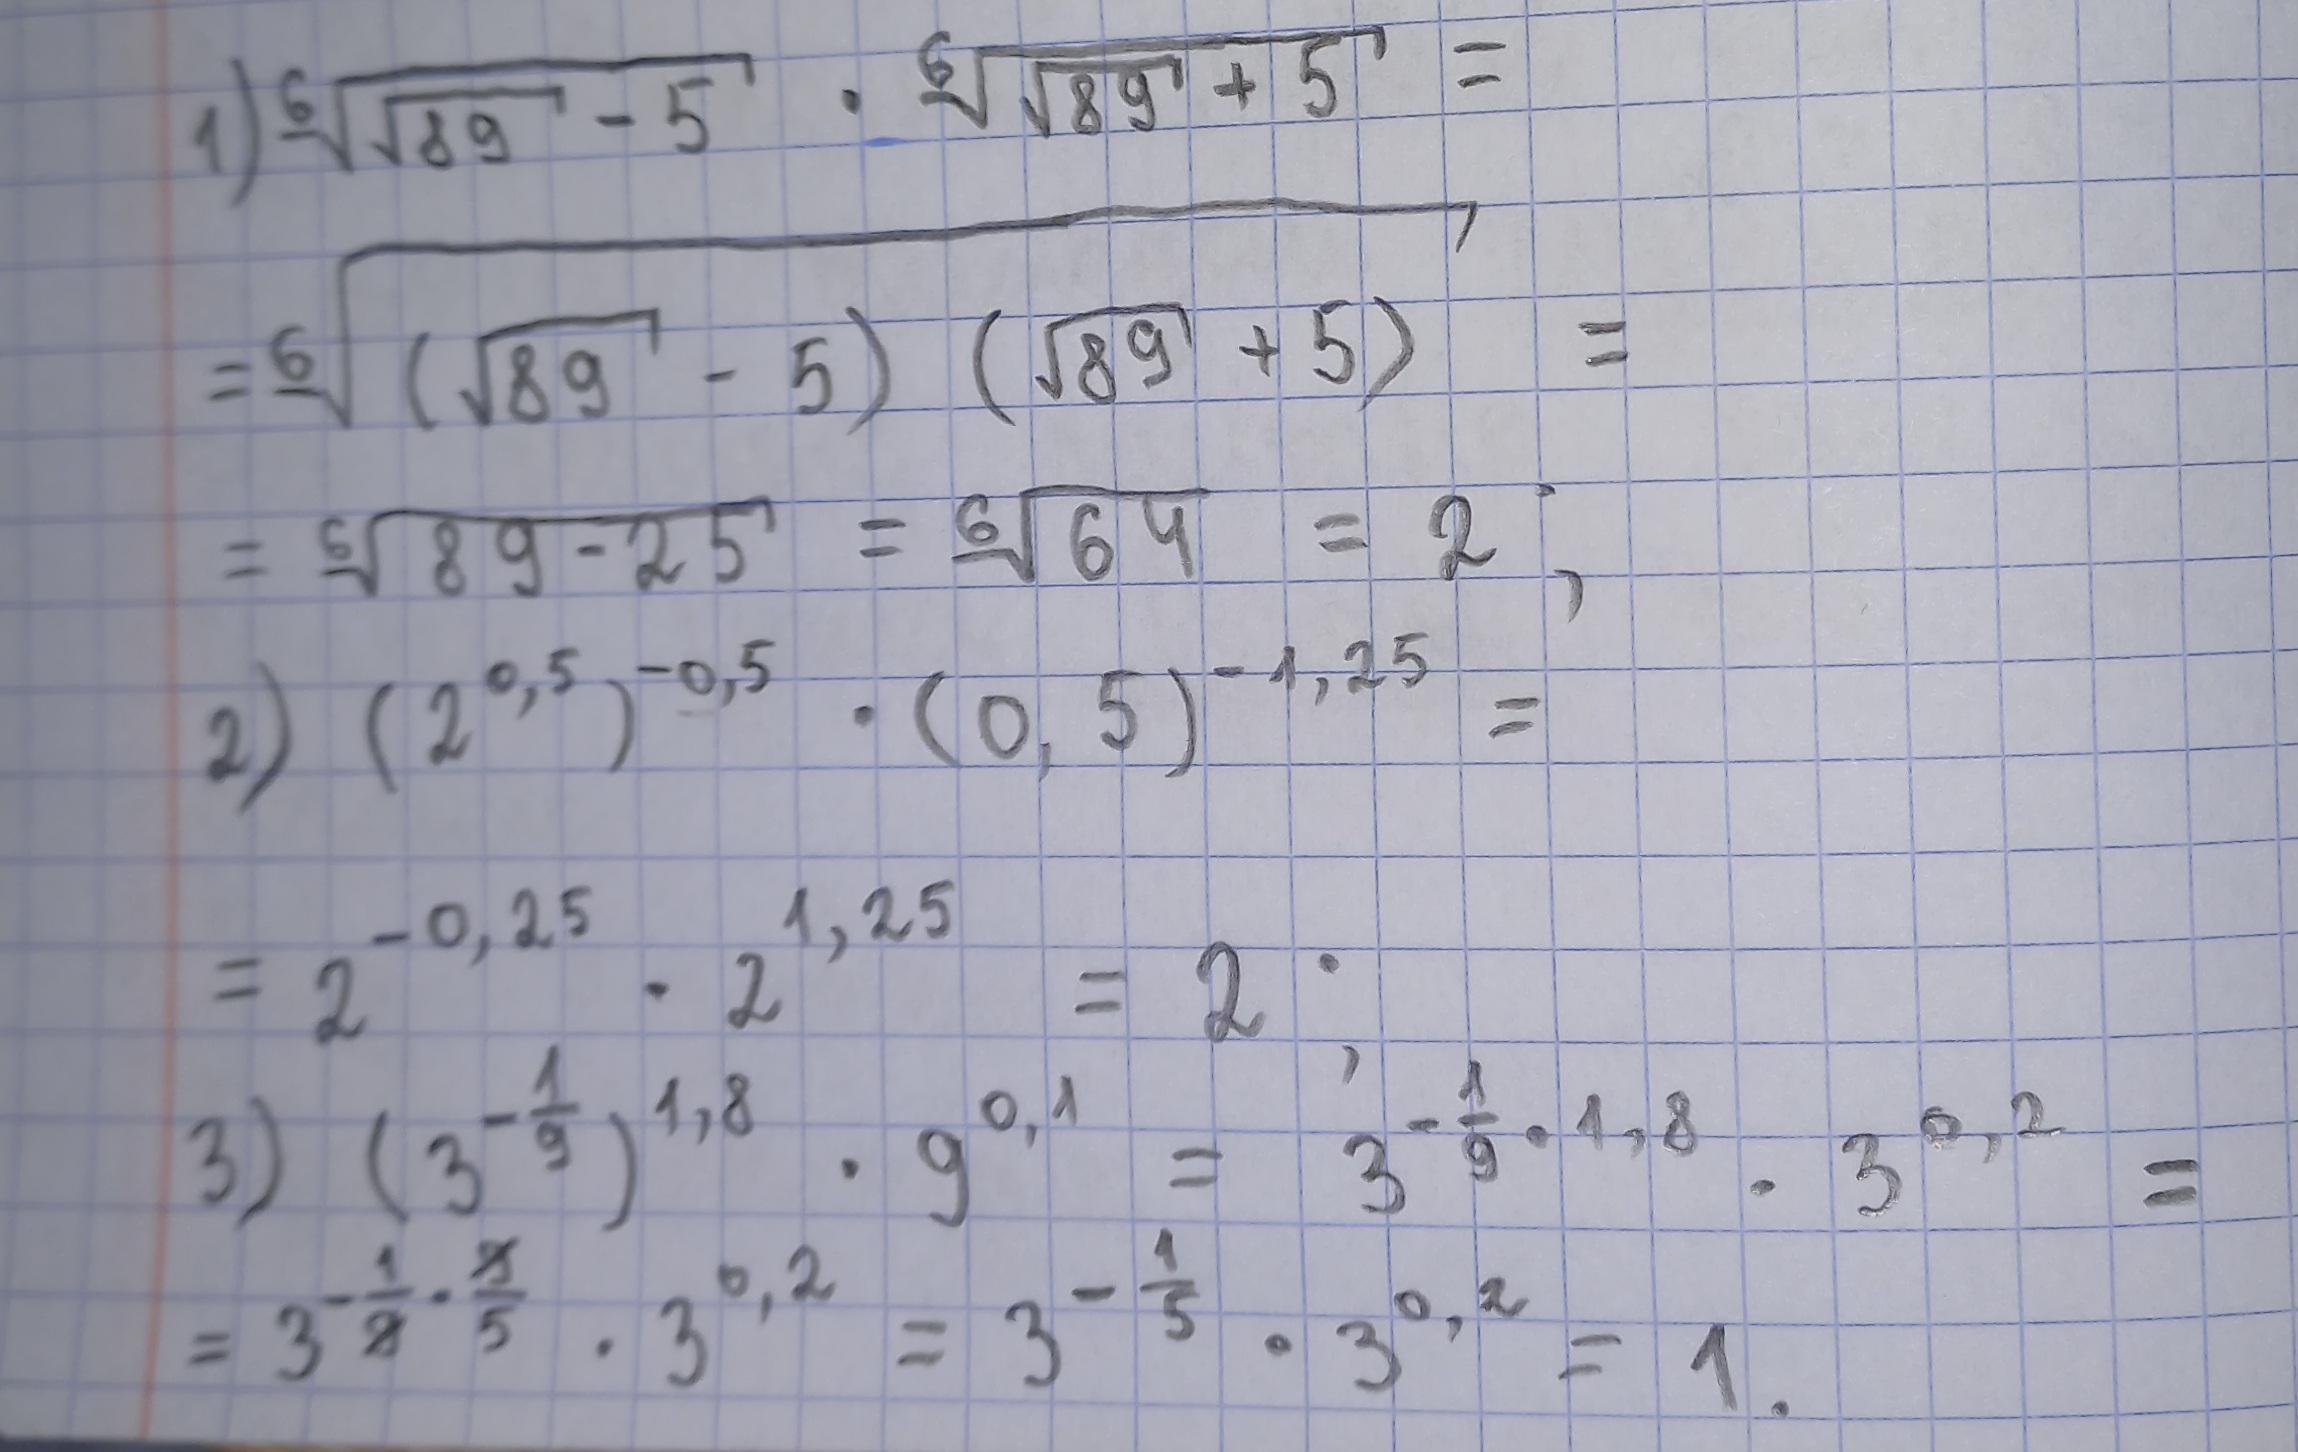 1) ⁶√(√89 - 5) · ⁶√(√89 + 5) =
= ⁶√((√89 - 5) (√89 + 5)) =
= ⁶√(89 - 25) = ⁶√64 = 2 ;
2) (2^0,5)^-0,5 · (0,5)^-1,25 =
= 2^-0,25 · 2^1,25 = 2 ;
3) (3^-1/9)^1,8 · 9^0,1 = 3^(-1/9 · 1,8) · 3^0,2 =
= 3^(-1/9 · 9/5) · 3^0,2 = 3^-1/5 · 3^0,2 = 1.